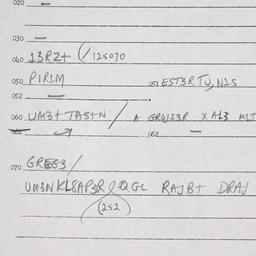 020 —
030 —
040 13RZ+ (/125070
050 PIRIM 051 EST3R TJ, NIS
052 —
060 UM3+ TAS+N / A GRQIS3R XAL3 MIT
061 062 —
070 GREG3/
UM3NKL8AP3R QGL RAJB+ DRAJ
(252)